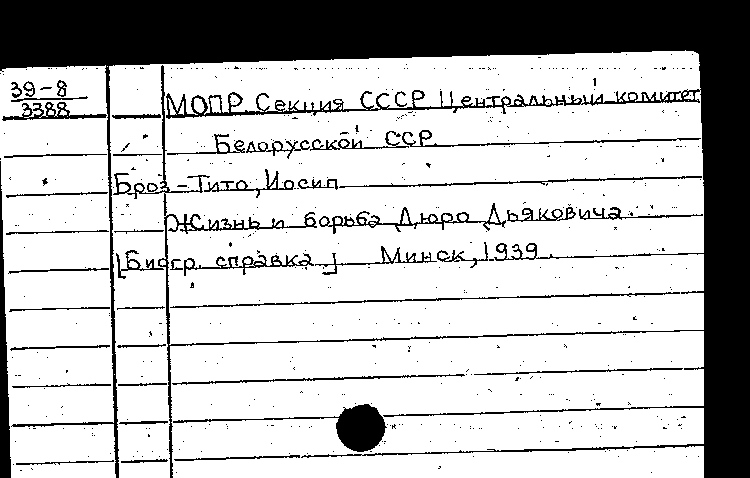 39-8
3388
МОПР. Секция СССР. Центральный комитет
Белорусской ССР.
Броз-Тито, Иосип
Жизнь и борьба Дюро Дьяковича.
[Биогр. справка.] Минск, 1939.